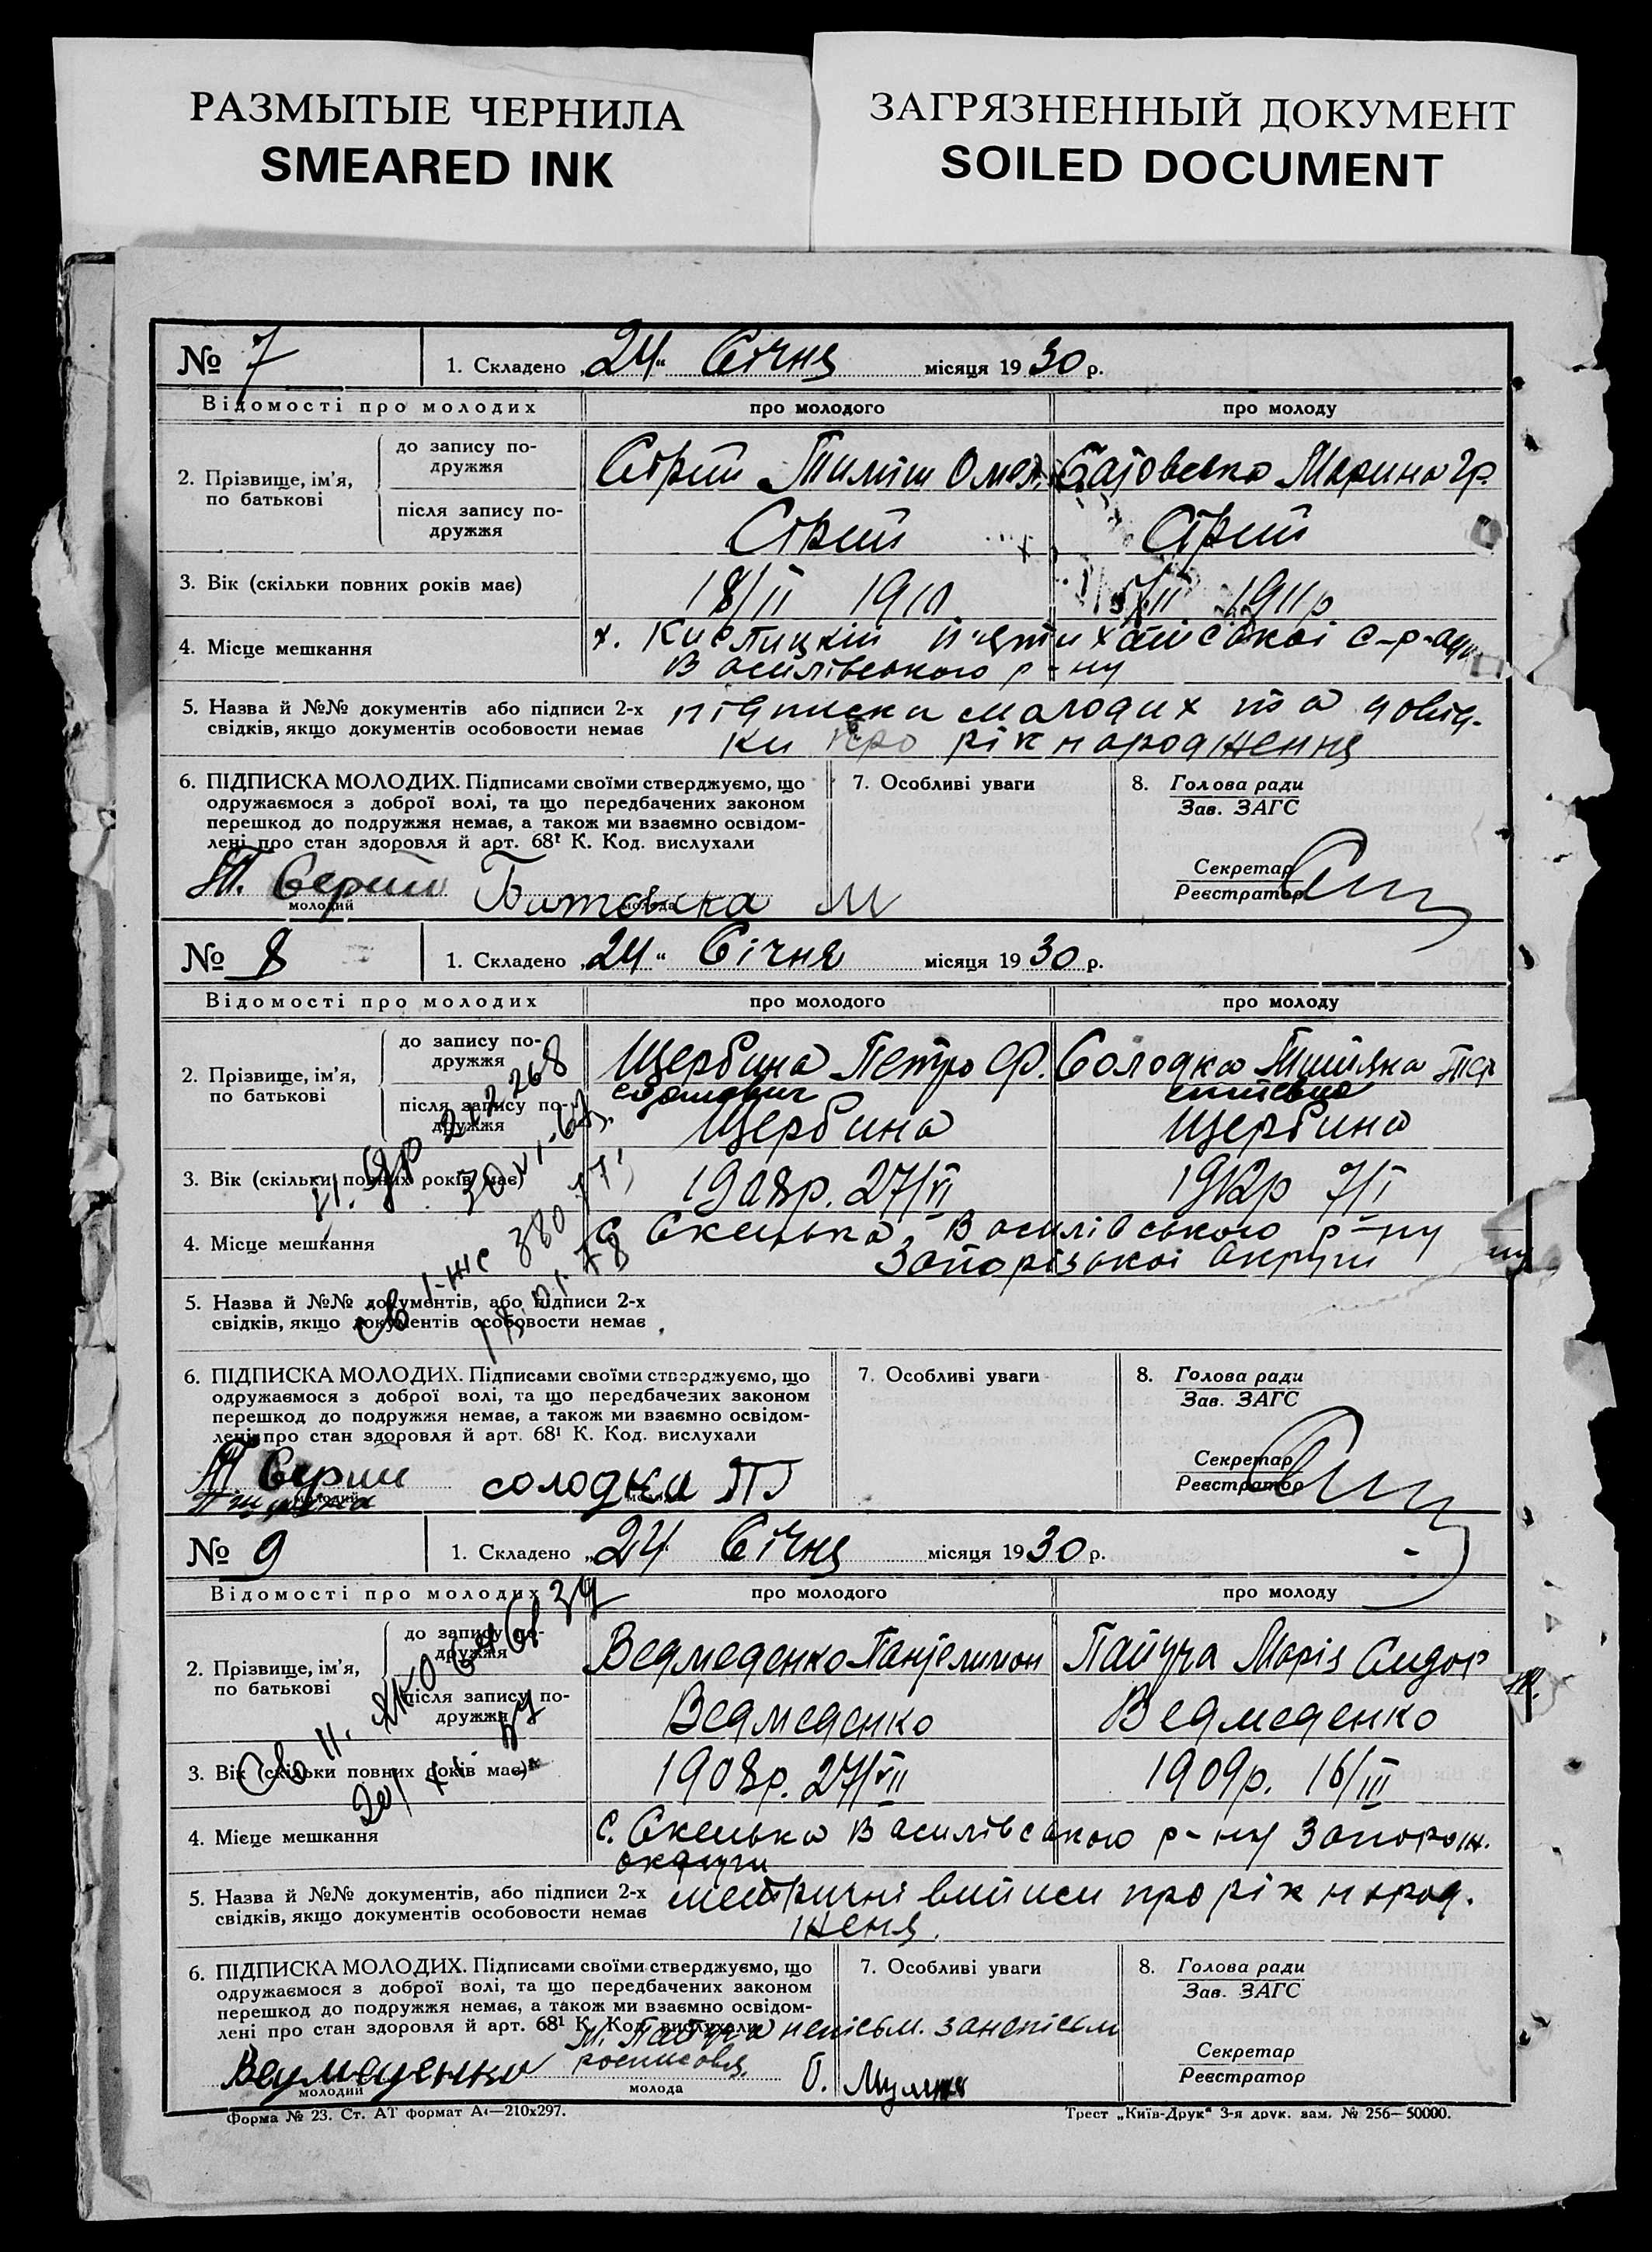 РАЗМЫТЫЕ ЧЕРНИЛА
SMEARED INK
ЗАГРЯЗНЕННЫЙ ДОКУМЕНТ
SOILED DOCUMENT
№ 7
1. Складено „24“ Січня місяця 1930 р.
Відомості про молодих
про молодого
про молоду
2. Прізвище, ім'я, по батькові
до запису по-
дружжя
Марина Гр.
після запису по-
дружжя
3. Вік (скільки повних років має)
18/II 1910
1911р
4. Місце мешкання
х. Кислицкій П'ятихатської с-р-ади
Василівського р-ну
5. Назва й №№ документів або підписи 2-х
свідків, якщо документів особовости немає
підписка молодих та довід-
ки про рік народження
6. ПІДПИСКА МОЛОДИХ. Підписами своїми стверджуємо, що
одружаємося з доброї волі, та що передбачених законом
перешкод до подружжя немає, а також ми взаємно освідом-
лені про стан здоровля й арт. 68¹ К. Код. вислухали
молодий
молода
М
7. Особливі уваги
8. Голова ради
Зав. ЗАГС
Секретар
Реєстратор
№ 8
1. Складено „24“ Січня місяця 1930 р.
Відомості про молодих
про молодого
про молоду
2. Прізвище, ім'я, по батькові
до запису по-
дружжя
Щербина Петро Ф.
Солодка
після запису по-
дружжя
Щербина
Щербина
3. Вік (скільки повних років має)
1908р. 27/VI
1912р 7/I
4. Місце мешкання
с Скелька, Василівського р-ну
Запорізької округи
5. Назва й №№ документів, або підписи 2-х
свідків, якщо документів особовости немає
6. ПІДПИСКА МОЛОДИХ. Підписами своїми стверджуємо, що
одружаємося з доброї волі, та що передбачених законом
перешкод до подружжя немає, а також ми взаємно освідом-
лені про стан здоровля й арт. 68¹ К. Код. вислухали
солодка
молодий
молода
7. Особливі уваги
8. Голова ради
Зав. ЗАГС
Секретар
Реєстратор
№ 9
1. Складено „24 Січня місяця 1930 р.
Відомості про молодих
про молодого
про молоду
2. Прізвище, ім'я, по батькові
до запису по-
дружжя
Ведмеденко Пантелимон
Марія Сидор
після запису по-
дружжя
Ведмеденко
Ведмеденко
3. Вік (скільки повних років має)
1908р. 27/VII
1909р. 16/III
4. Місце мешкання
с. Скелька Василівського р-ну Запорож.
округи
5. Назва й №№ документів, або підписи 2-х
свідків, якщо документів особовости немає
метричні виписи про рік народ.
женя.
6. ПІДПИСКА МОЛОДИХ. Підписами своїми стверджуємо, що
одружаємося з доброї волі, та що передбачених законом
перешкод до подружжя немає, а також ми взаємно освідом-
лені про стан здоровля й арт. 68¹ К. Код. вислухали
Ведмеденко
молодий
молода
7. Особливі уваги
8. Голова ради
Зав. ЗАГС
Секретар
Реєстратор
Форма № 23. Ст. АТ формат А₄—210х297.
Трест „Київ-Друк“ 3-я друк. зам. № 256—50000.